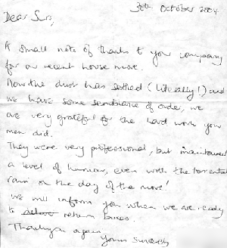 30th October 2004
Dear Sir,
A small note of thanks to your company
for our recent house move.
Now the dust has settled (literally!) and
we have some semblance of order, we
are very grateful for the hard work your
men did.
They were very professional, but maintained
a level of humour, even with the torrential
rain on the day of the move!
We will inform you when we are ready
to return boxes.
Thanking you again
Yours sincerely